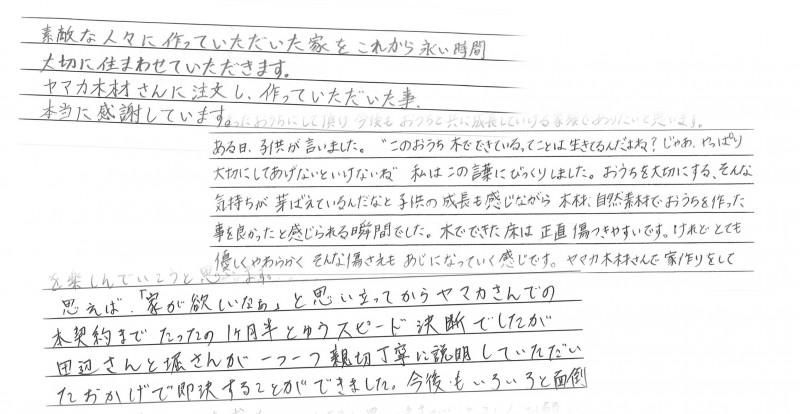 素敵な人々に作っていただいた家をこれから永い時間
大切に住まわせていただきます。
ヤマカ木材さんに注文し、作っていただいた事、
本当に感謝しています。
ったおうちにして頂り 今後も おうちと共に成長していける家族でありたいと思います。
ある日、子供が言いました。“このおうち木でできている、てことは生きてるんだよね?じゃあ、やっぱり
大切にしてあげないといけないね” 私はこの言葉にびっくりしました。おうちを大切にする、そんな
気持ちが芽ばえているんだなと子供の成長も感じながら 木材、自然素材でおうちを作った
事を良かったと感じられる瞬間でした。木でできた床は正直傷つきやすいです。けれどとても
優しくやわらかく そんな傷さえも あじになっていく感じです。ヤマカ木材さんで家作りをして
を楽しんでいこうと思っています。
思えば、「家が欲しいなぁ」と思い立ってからヤマカさんでの
本契約まで たったの1ヶ月半とゆうスピード決断でしたが
田辺さんと堀さんが一つ一つ親切丁寧に説明していただい
たおかげで即決することができました。今後もいろいろと面倒